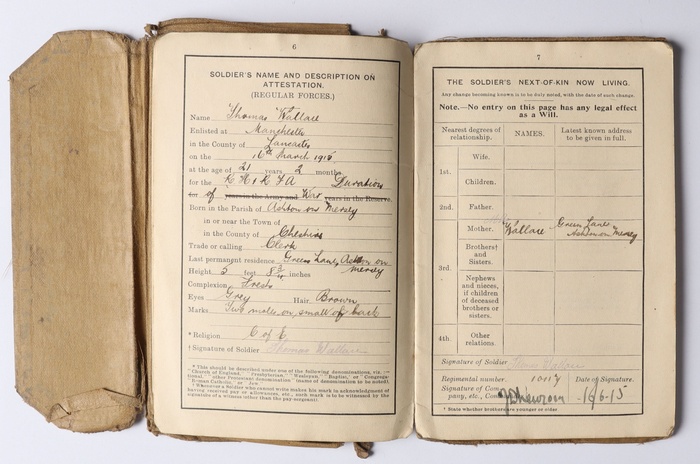 6
SOLDIER'S NAME AND DESCRIPTION ON
ATTESTATION.
(REGULAR FORCES.)
Name Thomas Wallace
Enlisted at Manchester
in the County of Lancaster
on the 16th March 1915
at the age of 21 years 2 months
for the R H & R F A Duration
for of years in the Army and War years in the Reserve.
Born in the Parish of Ashton on Mersey
in or near the Town of
in the County of Cheshire
Trade or calling Clerk
Last permanent residence Green Lane, Ashton on
Mersey
Height 5 feet 8 3/4 inches
Complexion Fresh
Eyes Grey Hair Brown
Marks Two moles on small of back
* Religion C of E
† Signature of Soldier Thomas Wallace
* This should be described under one of the following denominations, viz.:—
"Church of England," "Presbyterian," "Wesleyan," "Baptist," or "Congrega-
tional," "other Protestant denomination" (name of denomination to be noted),
"Roman Catholic," or "Jew."
† Whenever a Soldier who cannot write makes his mark in acknowledgment of
having received pay or allowances, etc., such mark is to be witnessed by the
signature of a witness other than the pay-sergeant.
7
THE SOLDIER'S NEXT-OF-KIN NOW LIVING.
Any change becoming known is to be duly noted, with the date of such change.
Note.—No entry on this page has any legal effect
as a Will.
Nearest degrees of
relationship.
NAMES.
Latest known address
to be given in full.
1st.
Wife.
Children.
2nd.
Father.
3rd.
Mother.
Wallace
Green Lane
Ashton on Mersey
Brothers†
and
Sisters.
Nephews
and nieces,
if children
of deceased
brothers or
sisters.
4th.
Other
relations.
Signature of Soldier Thomas Wallace
Regimental number, 10117
Date of Signature.
Signature of Com-
pany, etc.,
16/6-15
† State whether brothers are younger or older